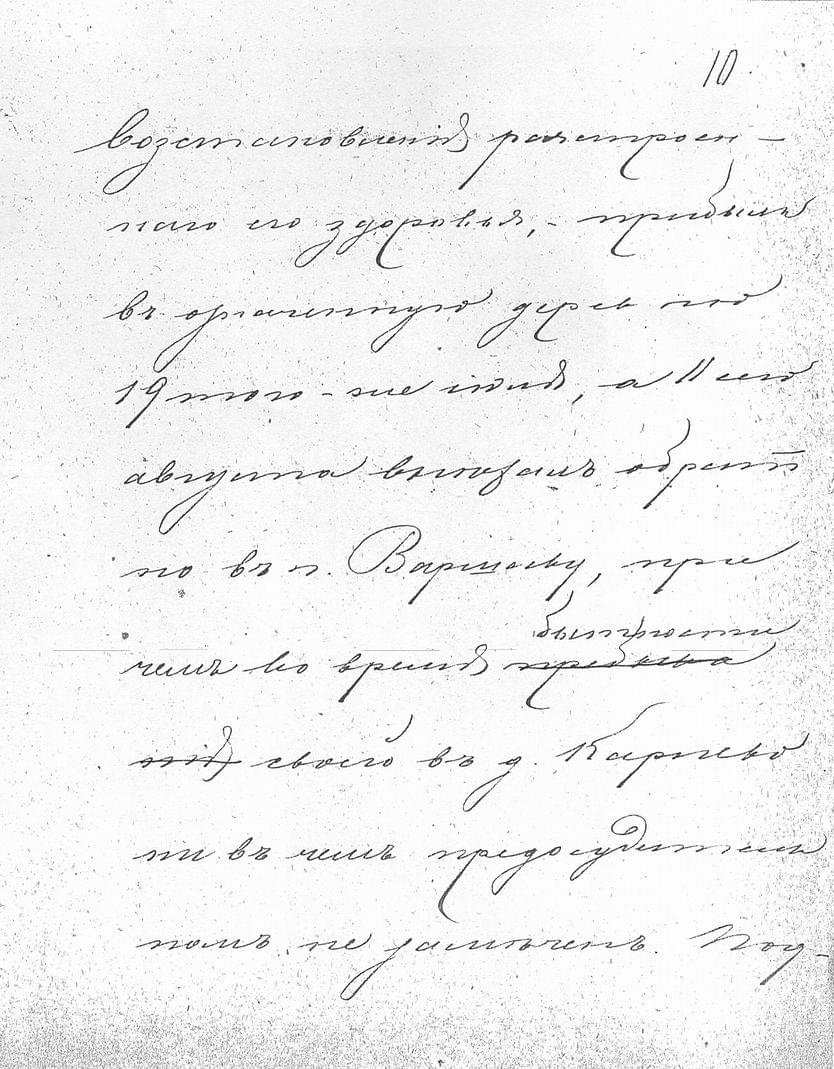 10
возстановленія разстроен-
наго его здоровья, - прибылъ
въ означенную деревню
19 того-же іюля, а 11 сего
августа выѣхалъ обрат
но въ г. Варшаву, при
бытности
чемъ во время пребыва
нія своего въ д. Карпево
ни въ чемъ предосудитель
номъ не замѣченъ. Под-